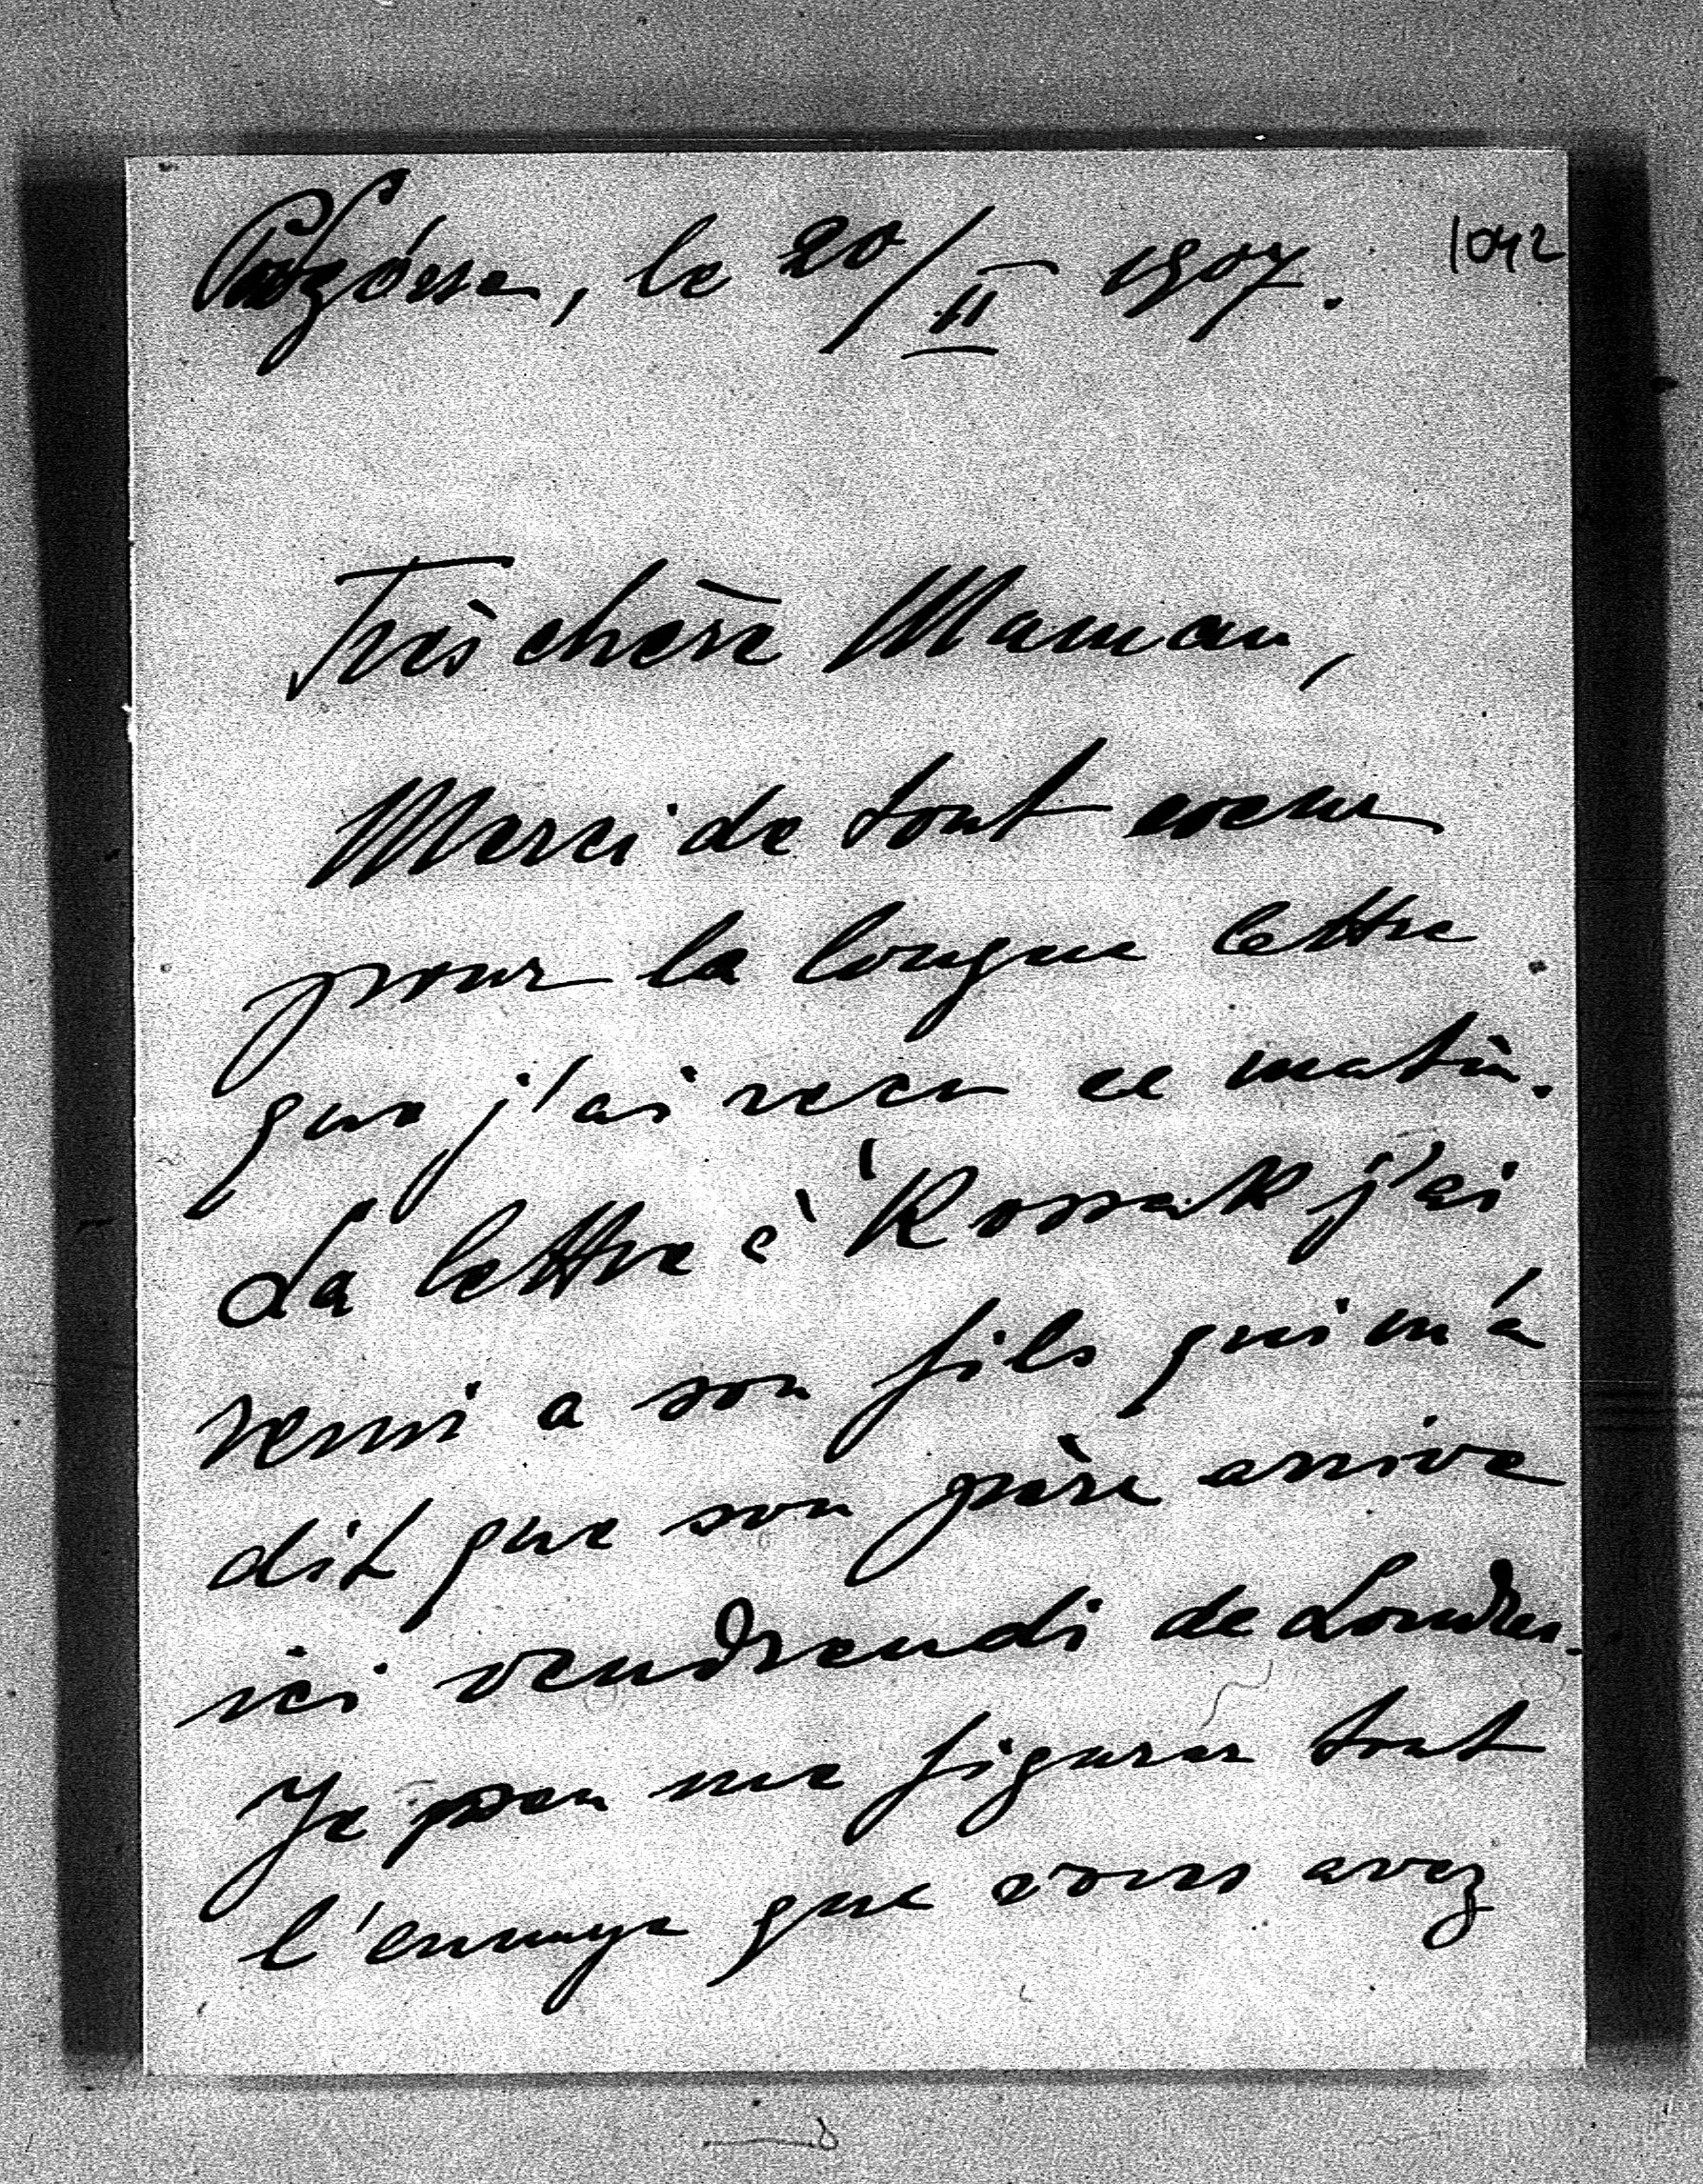 Podgórze, le 20/II 1907.
1042
Très chère Maman,
Merci de tout coeur
pour la longue lettre
que j'ai recu ce matin.
La lettre à Kossak j'ai
remi a son fils qui m'a
dit que son père arrive
ici vendrendi de Londres.
Je peu me figurer tout
l'ennuye que vous avez